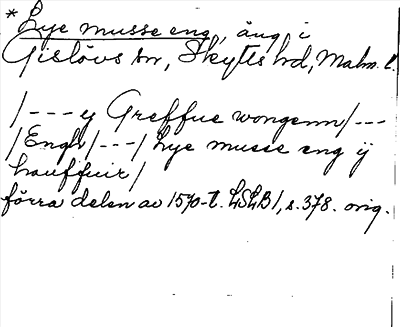 * Lye musse eng, äng i
Gislövs sn, Skytts hd, Malm. l.
/---y Greffue wongenn/---
/Engh/---/ Lye musse eng ÿ
hauffuir/
förra delen av 1570-t. LSLB 1, s. 378. orig.